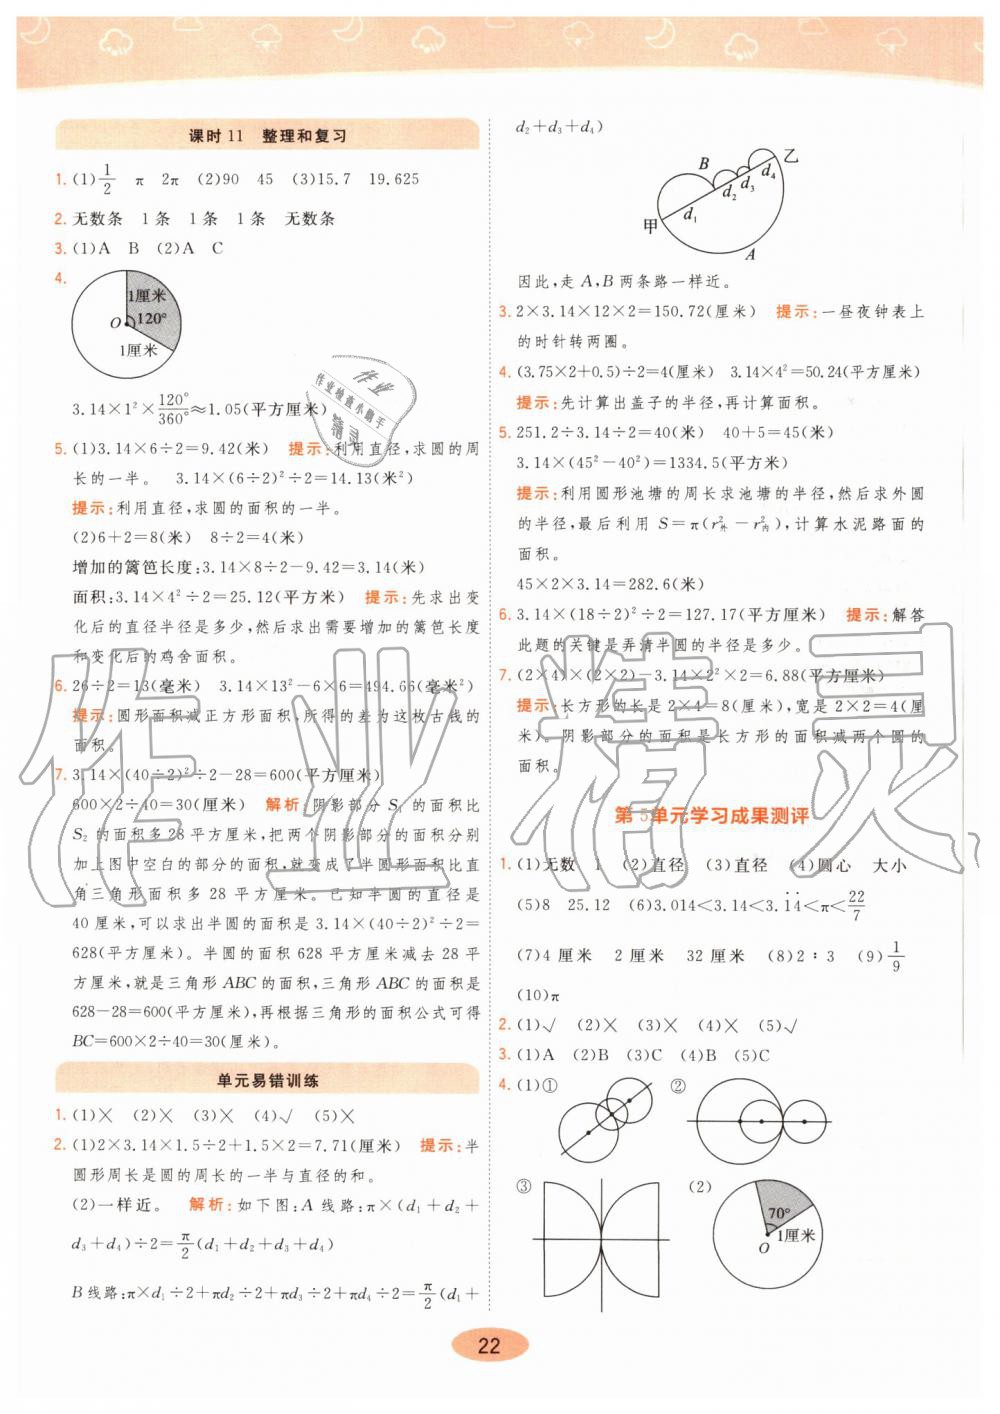 课时 11　整理和复习
1. (1)1/2　π　2π　(2)90　45　(3)15.7　19.625
2. 无数条　1条　1条　1条　无数条
3. (1)A　B　(2)A　C
4.
1厘米
O 120°
1厘米
3.14×1²×120°/360°≈1.05(平方厘米)
5. (1)3.14×6÷2=9.42(米)　提示:利用直径,求圆的周
长的一半。　3.14×(6÷2)²÷2=14.13(米²)
提示:利用直径,求圆的面积的一半。
(2)6+2=8(米)　8÷2=4(米)
增加的篱笆长度:3.14×8÷2-9.42=3.14(米)
面积:3.14×4²÷2=25.12(平方米)　提示:先求出变
化后的直径半径是多少,然后求出需要增加的篱笆长度
和变化后的鸡舍面积。
6. 26÷2=13(毫米)　3.14×13²-6×6=494.66(毫米²)
提示:圆形面积减正方形面积,所得的差为这枚古钱的
面积。
7. 3.14×(40÷2)²÷2-28=600(平方厘米)
600×2÷40=30(厘米)　解析:阴影部分 S₁ 的面积比
S₂ 的面积多28平方厘米,把两个阴影部分的面积分别
加上图中空白的部分的面积,就变成了半圆形面积比直
角三角形面积多 28 平方厘米。已知半圆的直径是
40 厘米,可以求出半圆的面积是 3.14×(40÷2)²÷2=
628(平方厘米)。半圆的面积 628 平方厘米减去 28 平
方厘米,就是三角形 ABC 的面积,三角形 ABC 的面积是
628-28=600(平方厘米),再根据三角形的面积公式可得
BC=600×2÷40=30(厘米)。
单元易错训练
1. (1)×　(2)×　(3)×　(4)√　(5)×
2. (1)2×3.14×1.5÷2+1.5×2=7.71(厘米)　提示:半
圆形周长是圆的周长的一半与直径的和。
(2)一样近。　解析:如下图:A 线路:π×(d₁+d₂+
d₃+d₄)÷2=π/2(d₁+d₂+d₃+d₄)
B 线路:π×d₁÷2+πd₂÷2+πd₃÷2+πd₄÷2=π/2(d₁+
d₂+d₃+d₄)
甲　乙　A　B　d₁　d₂　d₃　d₄
因此,走 A,B 两条路一样近。
3. 2×3.14×12×2=150.72(厘米)　提示:一昼夜钟表上
的时针转两圈。
4. (3.75×2+0.5)÷2=4(厘米)　3.14×4²=50.24(平方厘米)
提示:先计算出盖子的半径,再计算面积。
5. 251.2÷3.14÷2=40(米)　40+5=45(米)
3.14×(45²-40²)=1334.5(平方米)
提示:利用圆形池塘的周长求池塘的半径,然后求外圆
的半径,最后利用 S=π(r²外-r²内),计算水泥路面的
面积。
45×2×3.14=282.6(米)
6. 3.14×(18÷2)²÷2=127.17(平方厘米)　提示:解答
此题的关键是弄清半圆的半径是多少。
7. (2×4)×(2×2)-3.14×2²×2=6.88(平方厘米)
提示:长方形的长是2×4=8(厘米),宽是2×2=4(厘
米)。阴影部分的面积是长方形的面积减两个圆的
面积。
第 5 单元学习成果测评
1. (1)无数　1　(2)直径　(3)直径　(4)圆心　大小
(5)8　25.12　(6)3.014<3.14<3.1̇4̇<π<22/7
(7)4 厘米　2 厘米　32 厘米　(8)2∶3　(9)1/9
(10)π
2. (1)√　(2)×　(3)×　(4)×　(5)√
3. (1)A　(2)B　(3)C　(4)B　(5)C
4. (1)①　②
③　(2)
70°
1厘米
O
22
作业
作业检查小助手
精灵
作业精灵